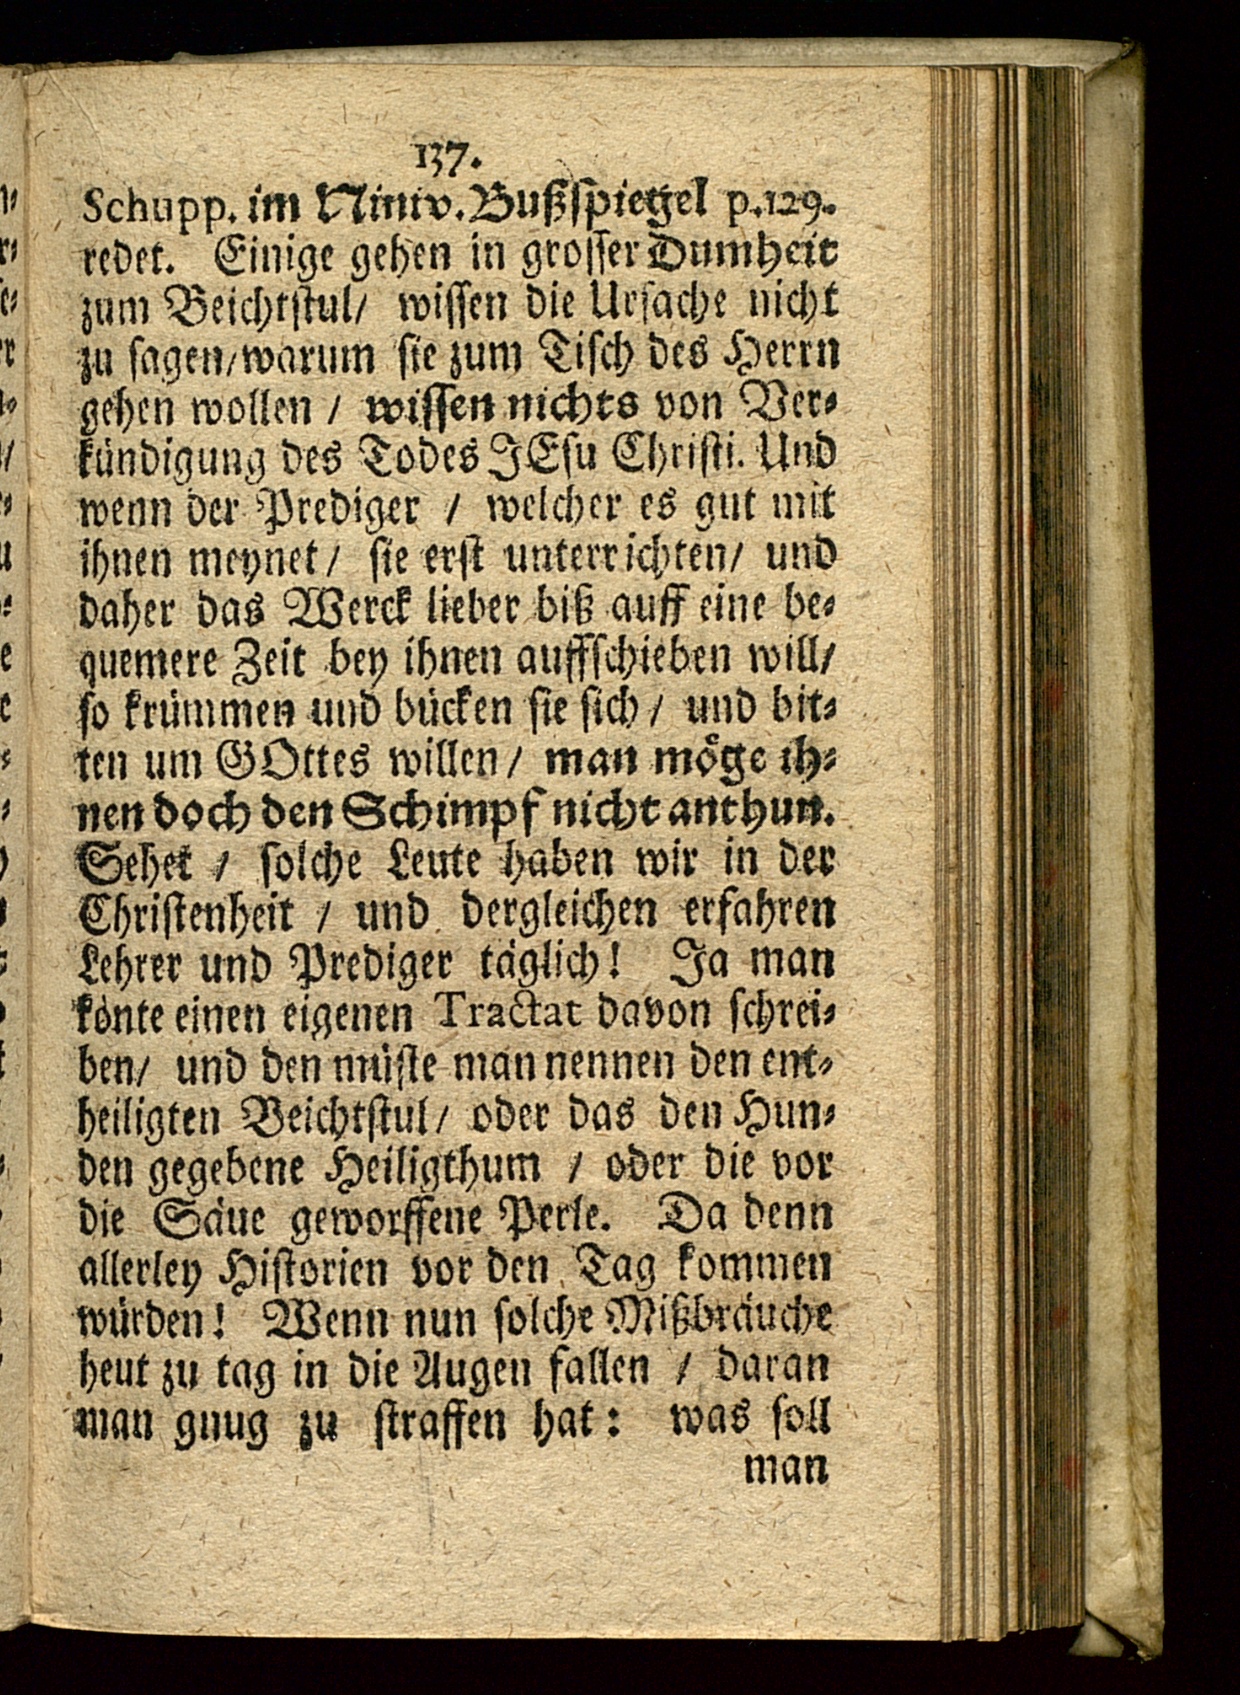 137.
Schupp. im Niniv. Bußspiegel p.129.
redet. Einige gehen in grosser Dumheit
zum Beichtstul/ wissen die Ursache nicht
zu sagen/warum sie zum Tisch des Herrn
gehen wollen / wissen nichts von Ver⸗
kündigung des Todes JEsu Christi. Und
wenn der Prediger / welcher es gut mit
ihnen meynet/ sie erst unterrichten/ und
daher das Werck lieber biß auff eine be⸗
quemere Zeit bey ihnen auffschieben will/
so krümmen und bücken sie sich / und bit⸗
ten um GOttes willen / man möge ih⸗
nen doch den Schimpf nicht anthun.
Sehet / solche Leute haben wir in der
Christenheit / und dergleichen erfahren
Lehrer und Prediger täglich! Ja man
könte einen eigenen Tractat davon schrei⸗
ben/ und den müste man nennen den ent⸗
heiligten Beichtstul/ oder das den Hun⸗
den gegebene Heiligthum / oder die vor
die Säue geworffene Perle. Da denn
allerley Historien vor den Tag kommen
würden! Wenn nun solche Mißbräuche
heut zu tag in die Augen fallen / daran
man gnug zu straffen hat: was soll
man